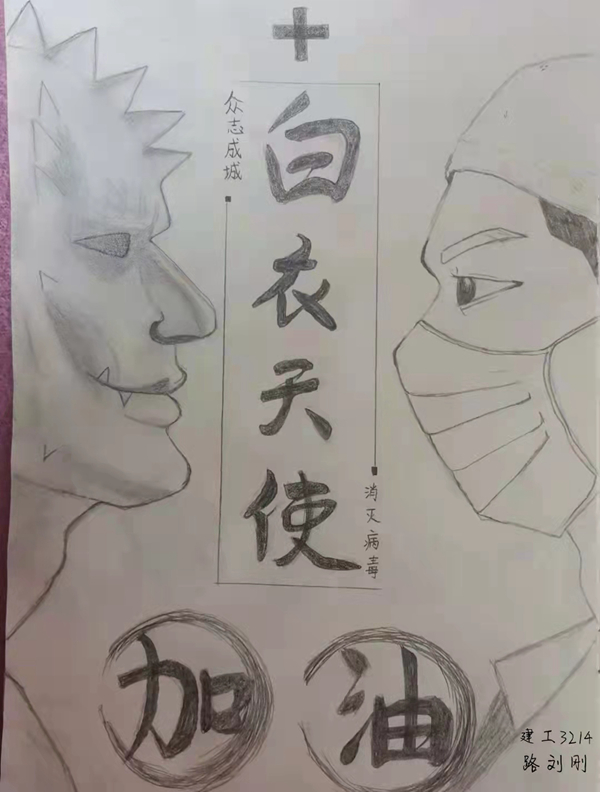 众志成城
白衣天使
消灭病毒
加油
建工3214
路刘刚